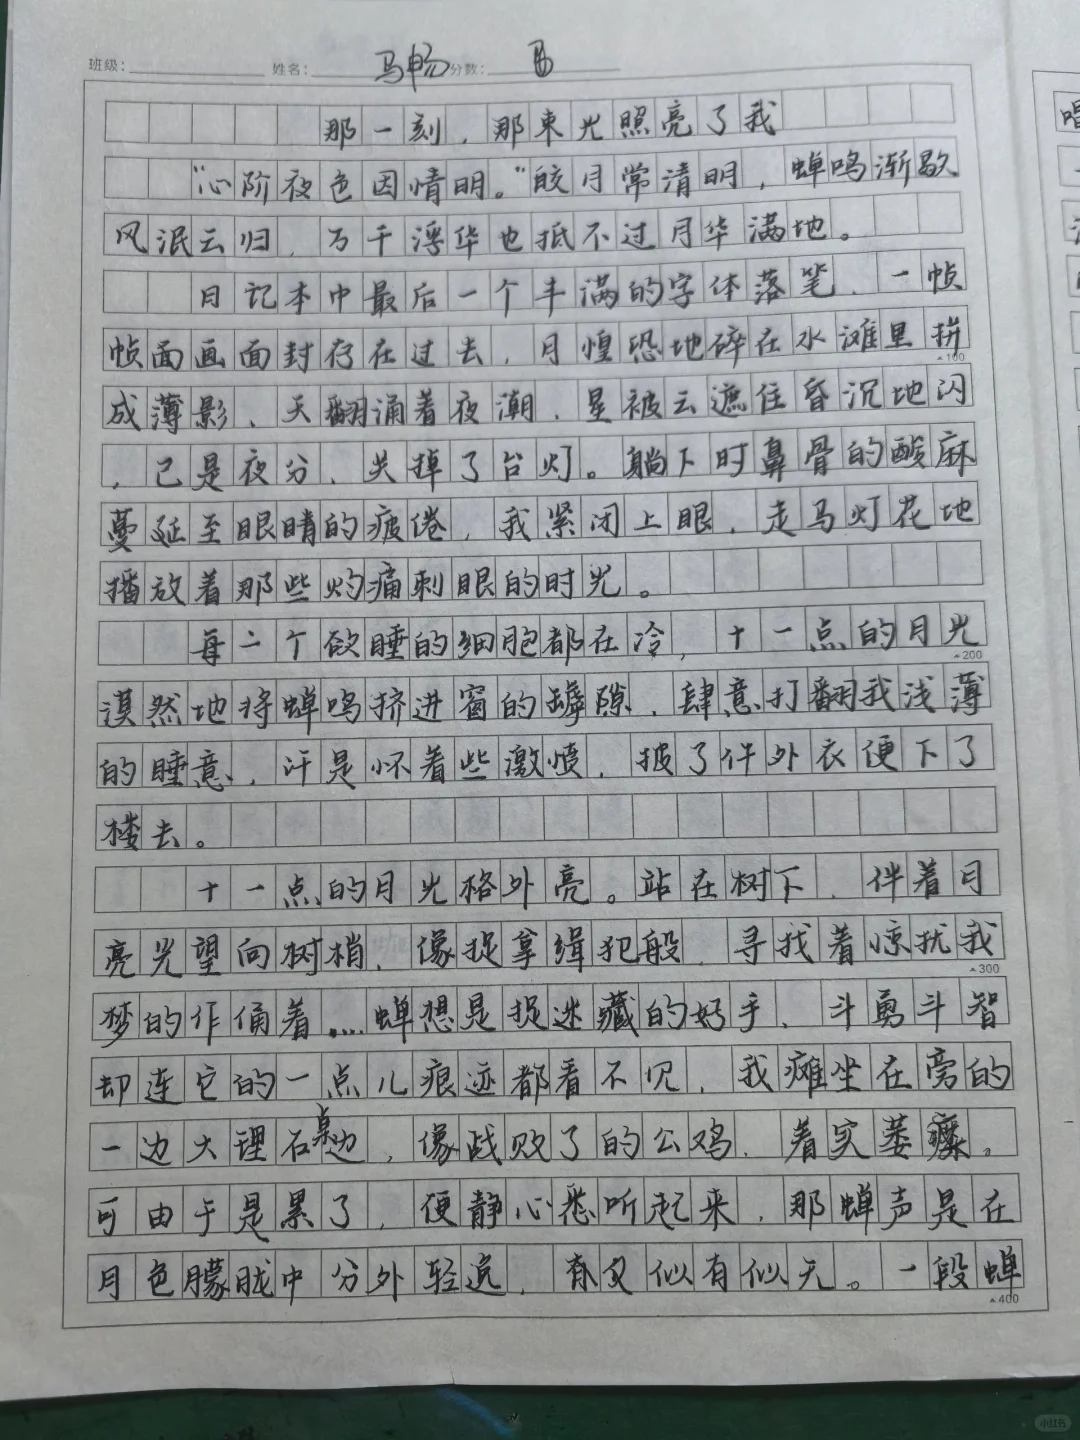 班级： 姓名： 马畅 分数：
那一刻，那束光照亮了我
“心阶夜色因情明。”皎月常清明，蝉鸣渐歇
风泯云归，万千浮华也抵不过月华满地。
日记本中最后一个丰满的字体落笔，一帧
帧面画面封存在过去，月惶恐地碎在水滩里拼
▲100
成薄影、天翻涌着夜潮，星被云遮住昏沉地闪
，已是夜分，关掉了台灯。躺下时鼻骨的酸麻
蔓延至眼睛的疲倦，我紧闭上眼，走马灯花地
播放着那些灼痛刺眼的时光。
每一个欲睡的细胞都在冷，十一点的月光
▲200
漠然地将蝉鸣挤进窗的罅隙，肆意打翻我浅薄
的睡意，汗是怀着些激愤，披了件外衣便下了
楼去。
十一点的月光格外亮。站在树下，伴着月
亮光望向树梢，像捉拿缉犯般，寻找着惊扰我
▲300
梦的作俑着……蝉想是捉迷藏的好手，斗勇斗智
却连它的一点儿痕迹都看不见，我瘫坐在旁的
一边大理石桌边，像战败了的公鸡，着实萎瘪。
可由于是累了，便静心悉听起来，那蝉声是在
月色朦胧中分外轻远，有又似有似无。一段蝉
▲400
小红书